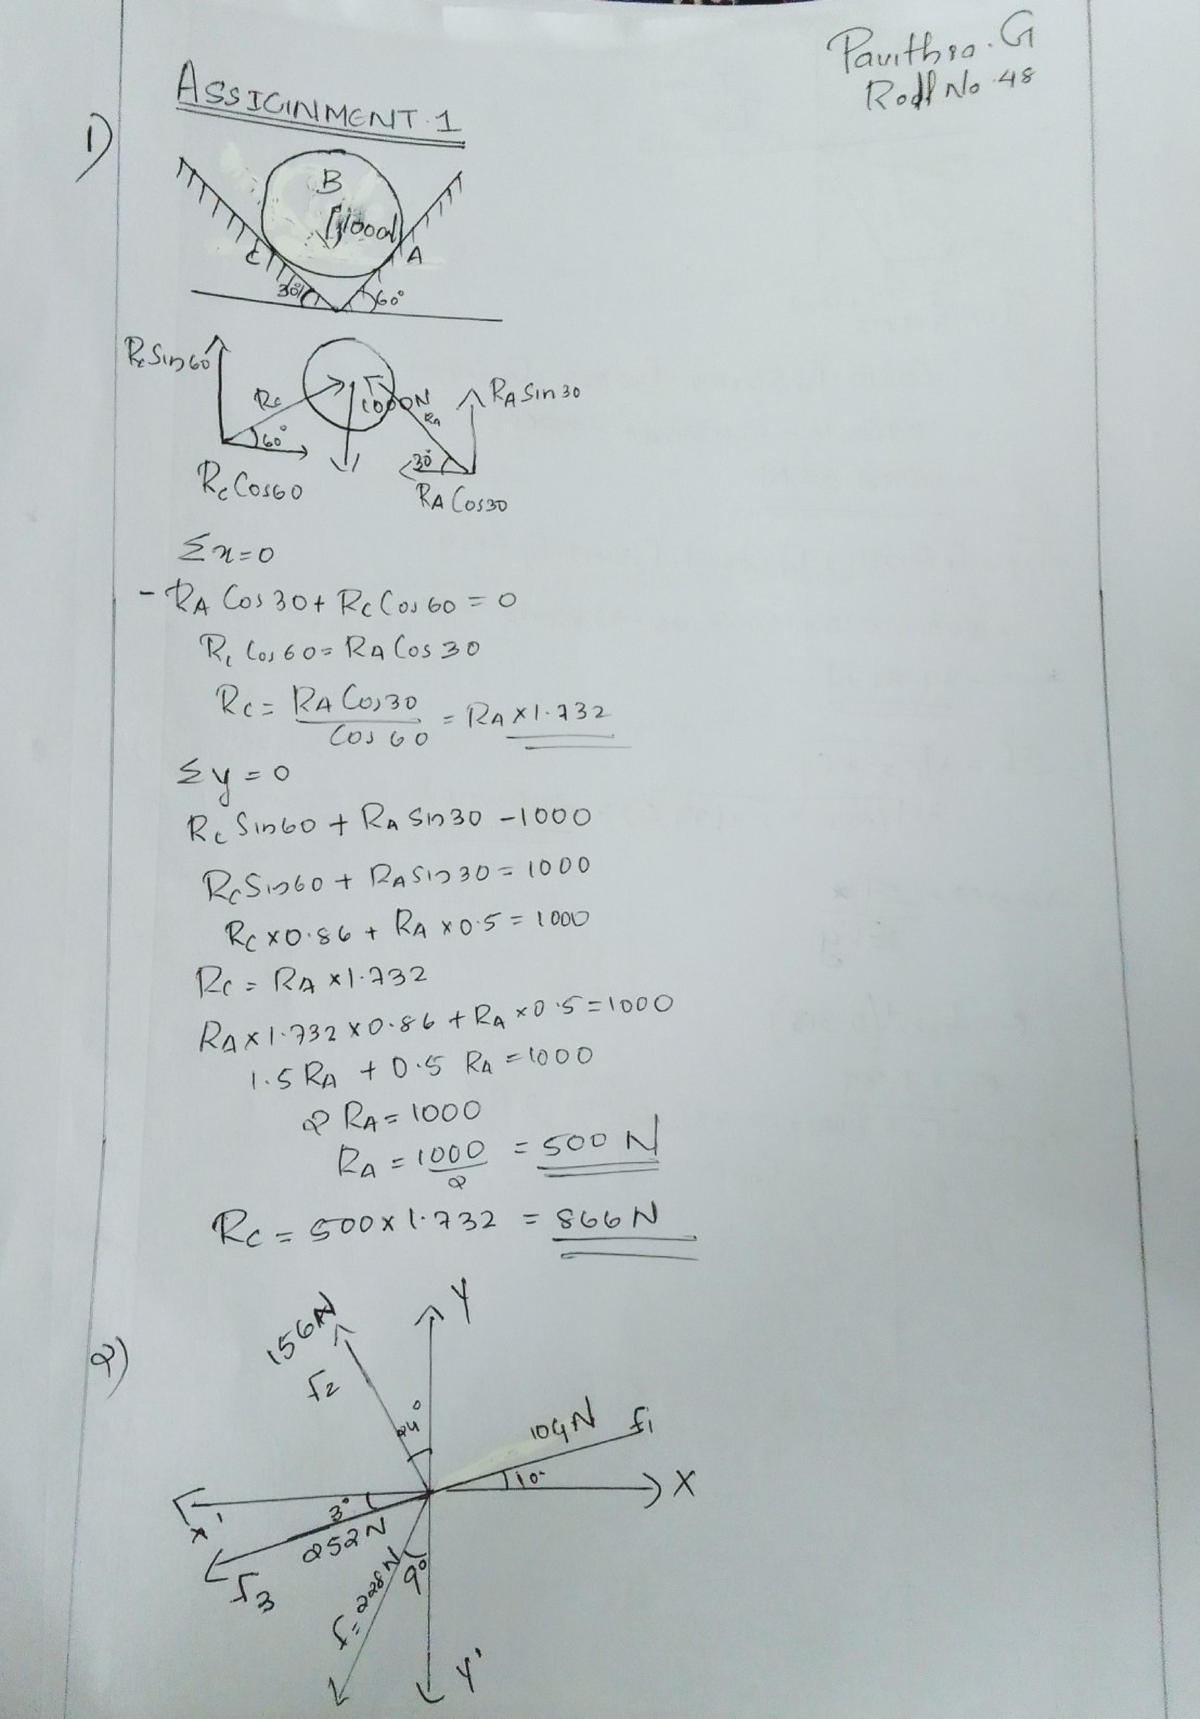 Pavithra. G
Roll No. 48
ASSIGINMENT. 1
1)
B
1000N
C
A
30°
60°
Rc Sin 60
Rc
1000N
RA
RA Sin 30
60°
30°
Rc Cos60
RA Cos30
Σx=0
- RA Cos 30 + Rc Cos 60 = 0
Rc Cos 60 = RA Cos 30
Rc = RA Cos 30 / Cos 60 = RA × 1.732
Σy = 0
Rc Sin 60 + RA Sin 30 - 1000
Rc Sin 60 + RA Sin 30 = 1000
Rc × 0.86 + RA × 0.5 = 1000
Rc = RA × 1.732
RA × 1.732 × 0.86 + RA × 0.5 = 1000
1.5 RA + 0.5 RA = 1000
2 RA = 1000
RA = 1000/2 = 500 N
Rc = 500 × 1.732 = 866 N
2)
156N
Y
f2
24°
104N
f1
10°
X
3°
X'
252N
f3
f=228N
9°
Y'